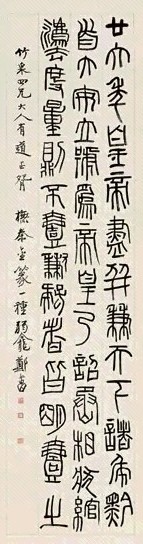 廿六年皇帝盡并兼天下諸矦黔
首大安立號為帝皇乃詔丞相狀綰
灋度量則不壹歉疑者皆明壹之
竹泉四兄大人有道正 橅秦金篆一種 弱龕鄭